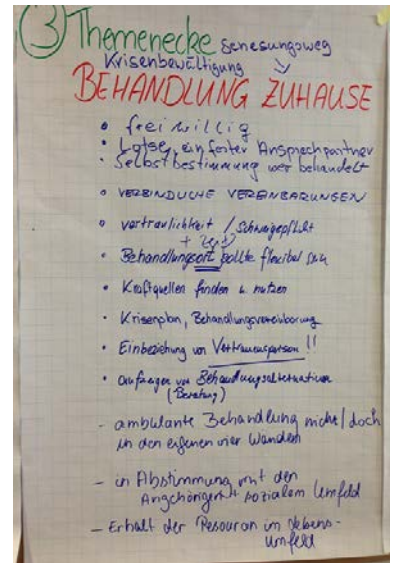 3 Themenecke Genesungsweg
Krisenbewältigung
BEHANDLUNG ZUHAUSE
• freiwillig
• Lotse, ein fester Ansprechpartner
• Selbstbestimmung wer behandelt
• VERBINDLICHE VEREINBARUNGEN
• Vertraulichkeit / Schweigepflicht
+ Zeit
• Behandlungsort sollte flexibel sein
• Kraftquellen finden u. nutzen
• Krisenplan, Behandlungsvereinbarung
• Einbeziehung von Vertrauensperson !!
• aufzeigen von Behandlungsalternativen
(Beratung)
- ambulante Behandlung nicht / doch
in den eigenen vier Wänden
- in Abstimmung mit den
Angehörigen + sozialem Umfeld
- Erhalt der Resourcen im Lebens-
umfeld